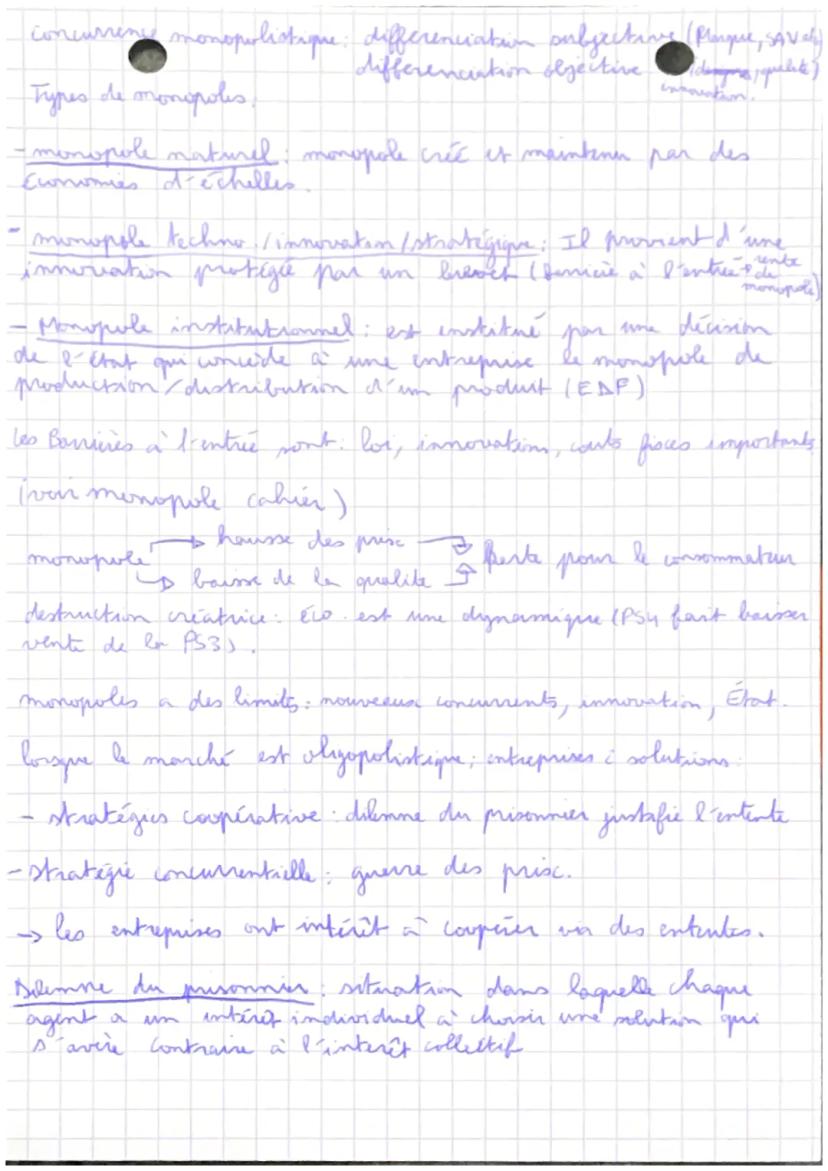 concurrence monopolistique: differenciation subjective (Marque, SAV etc)
differenciation objective (design, qualité)
innovation.
Types de monopoles.
- monopole naturel : monopole créé et maintenu par des
Économies d'échelles.
- monopole techno./innovation/stratégique: Il provient d'une
innovation protégée par un brevet (Barrière à l'entrée + rente de monopole)
- Monopole institutionnel : est institué par une décision
de l'état qui concède à une entreprise le monopole de
production/distribution d'un produit (EDF)
les Barrières à l'entrée sont: loi, innovation, couts fisces importants
(voir monopole cahier)
monopole → hausse des prisc → Perte pour le consommateur
→ baisse de la qualité
destruction créatrice: éco. est une dynamique (PS4 fait baisser
vente de la PS3).
monopoles a des limits: nouveaux concurrents, innovation, État.
lorsque le marché est oligopolistique; entreprises : solutions:
- stratégies coopérative : dilemne du prisonnier justifie l'entente
- stratégie concurrentielle : guerre des prisc.
→ les entreprises ont intérêt à coopérer via des ententes.
Dilemne du prisonnier : situation dans laquelle chaque
agent a un intérêt individuel à choisir une solution qui
s'avère contraire à l'interêt collectif